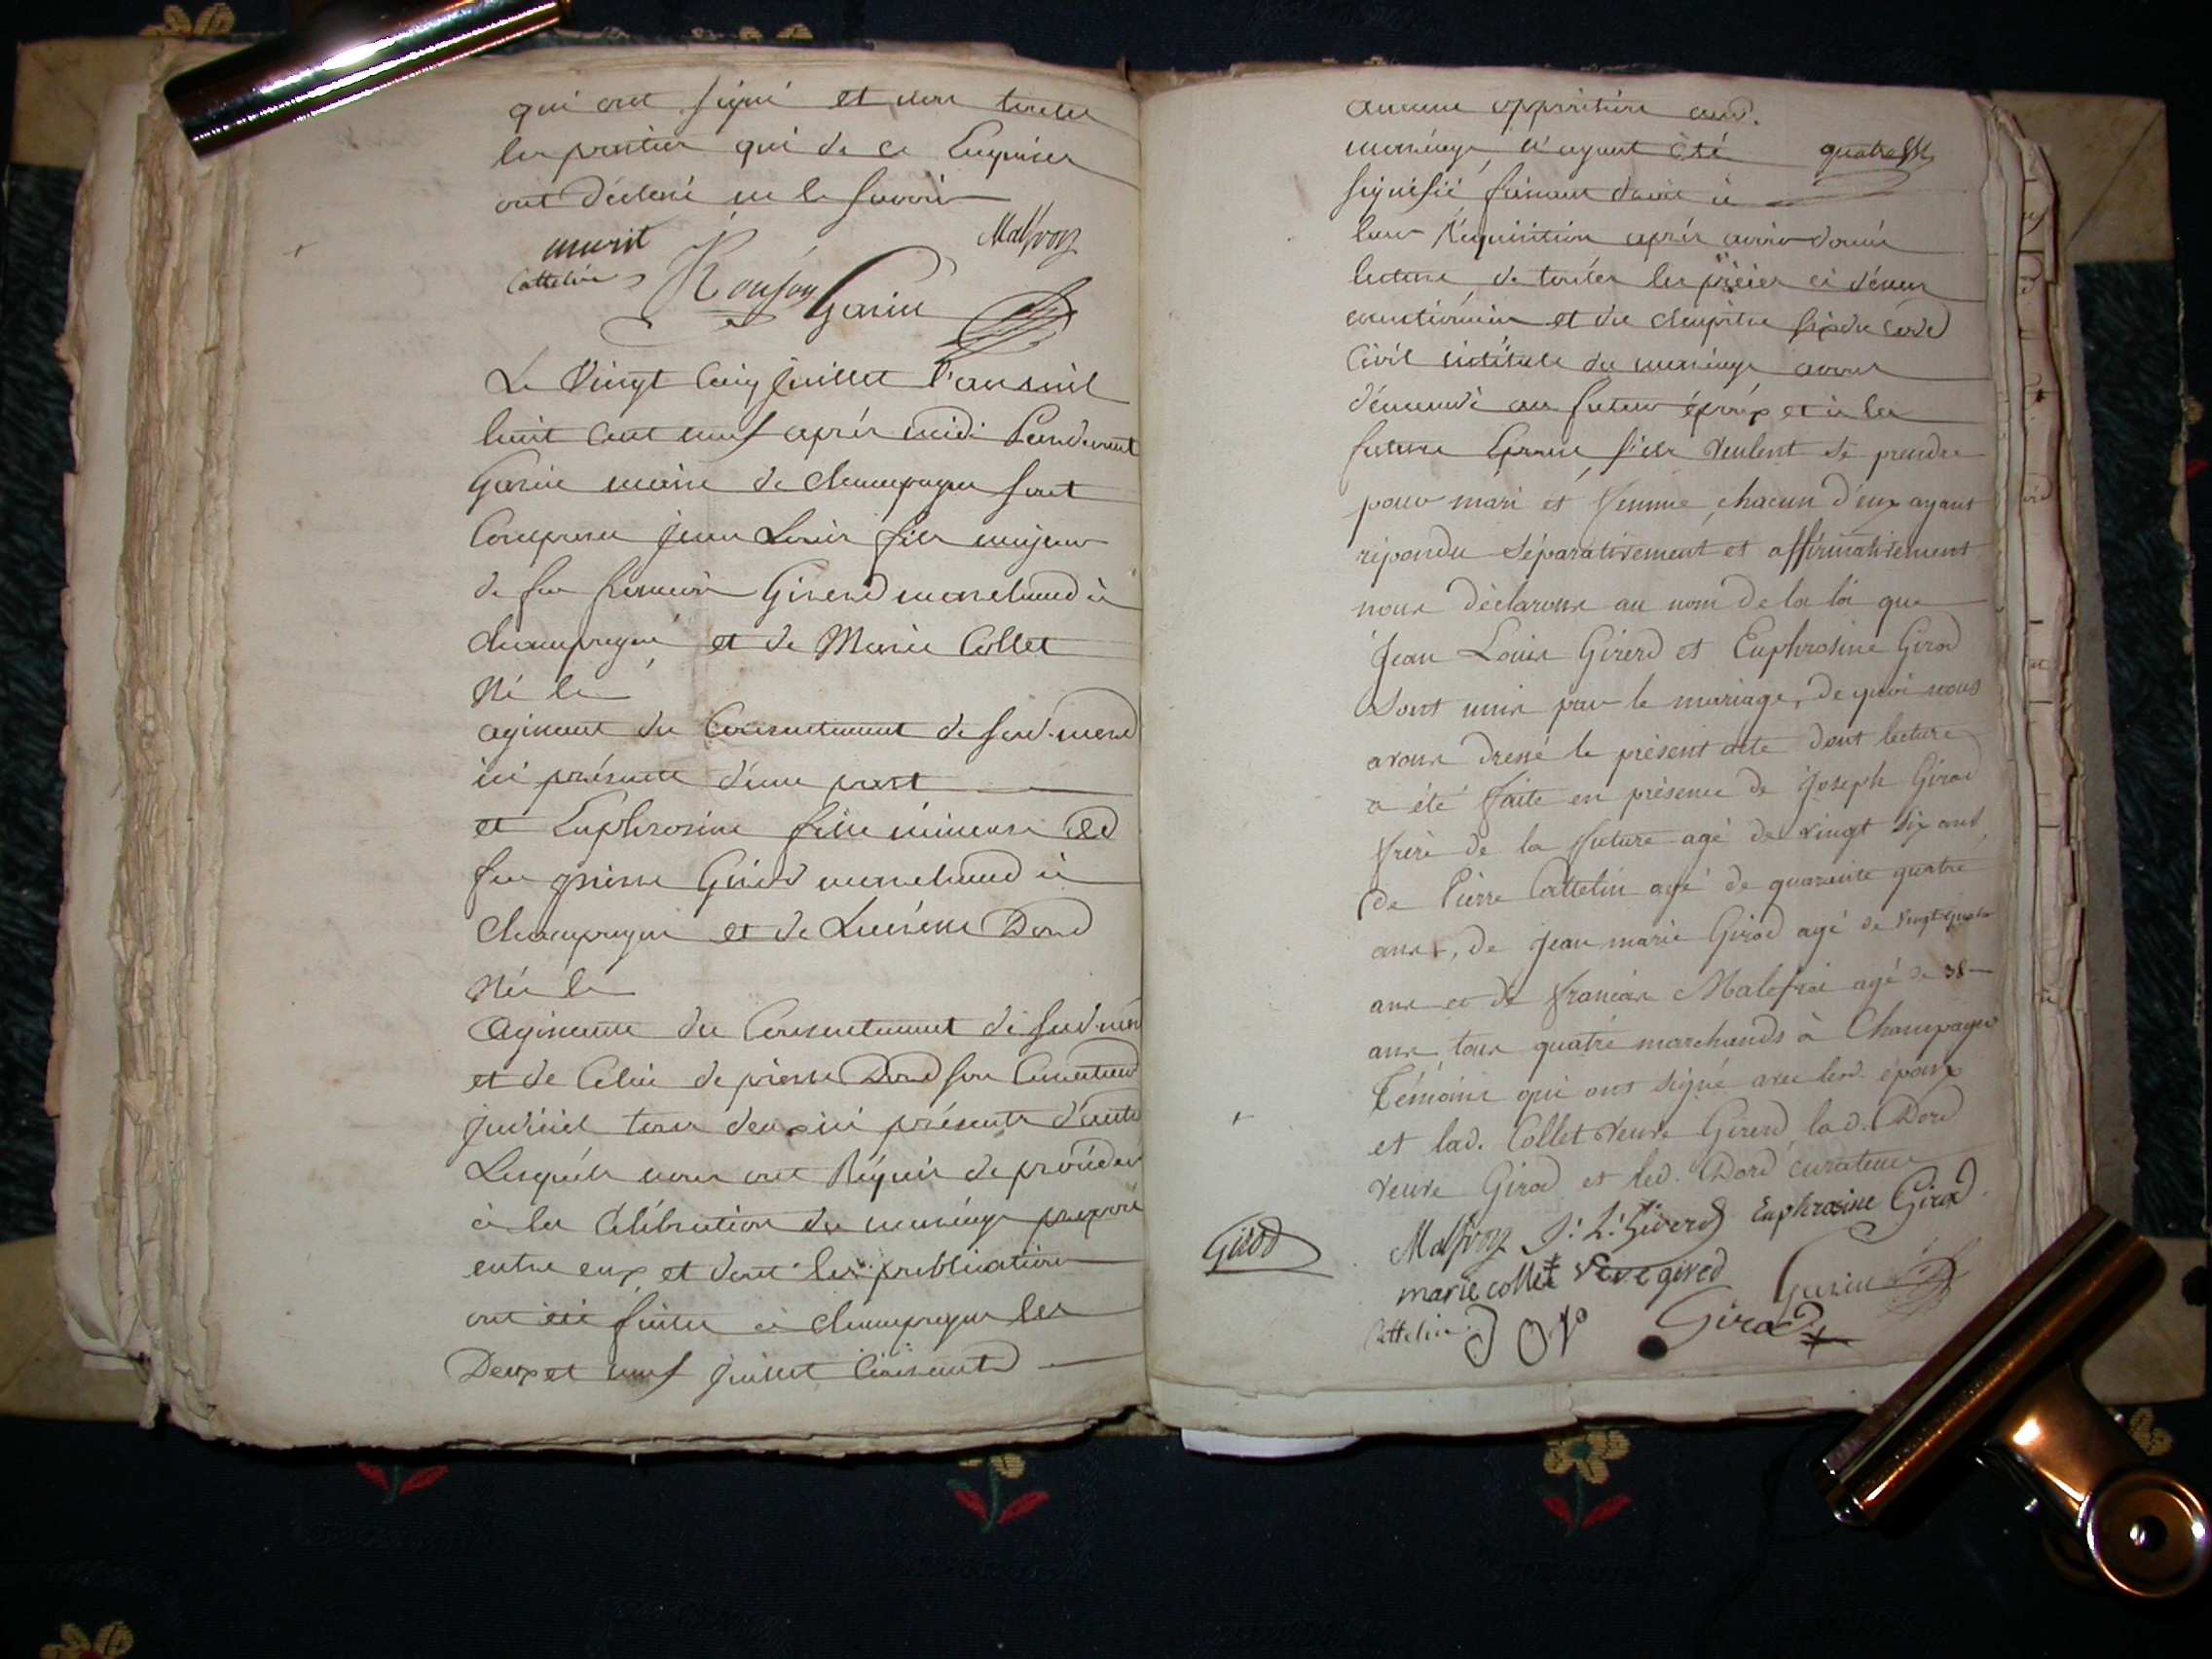 qui ont signé et non toutes
les parties qui de ce Enquises
ont déclaré ne le savoir
murit
Malfroy
Cattelin
Ronjon
Garin
Le Vingt Cinq Juillet l'an mil
huit Cent neuf après midi Pardevant
Garin maire de champagne sont
Comparu jean Louis fils majeur
de feu françois Girerd marchand à
champagne et de Marie Collet
Né le
agissant du Consentement de sad. mere
ici présente d'une part
et Euphrosine fille mineure de
feu pierre Girod marchand à
Champagne et de Dord
Née le
Agissante du Consentement de sad. mere
et de Celui de pierre Dord son Curateur
judiciel tous deux ici présents d'autre
Lesquels nous ont Réquis de procéder
à la Célébration du mariage proposé
entre eux et dont les publications
ont été faites à champagne les
Deux et neuf juillet Courant
aucune opposition aud.
mariage n'ayant été
signifié faisant droit à
leur Réquisition après avoir donné
lecture de toutes les pièces ci dessus
mentionnées et du chapitre six du Code
Civil intitulé du mariage avons
démandé au futur époux et à la
future Epouse s'ils veulent se prendre
pour mari et femme, chacun d'eux ayant
répondu séparativement et affirmativement
nous déclarons au nom de la loi que
Jean Louis Girerd et Euphrosine Girod
sont unis par le mariage, de quoi nous
avons dressé le présent acte dont lecture
a été faite en présence de joseph Girod
frère de la future agé de vingt six ans,
de Pierre Cattelin agé de quarante quatre
ans, de jean marie Girod agé de vingt quatre
ans et de françois Malefroi agé de 38
ans, tous quatre marchands à Champagne
témoins qui ont signé avec lesd. époux
et lad. Collet veuve Girerd lad. Dord
veuve Girod et led. Dord curateur
Girod
Malfroy J: L: Girerd Euphrosine Girod
marie collet veve girerd
Garin
Cattelin
Girod